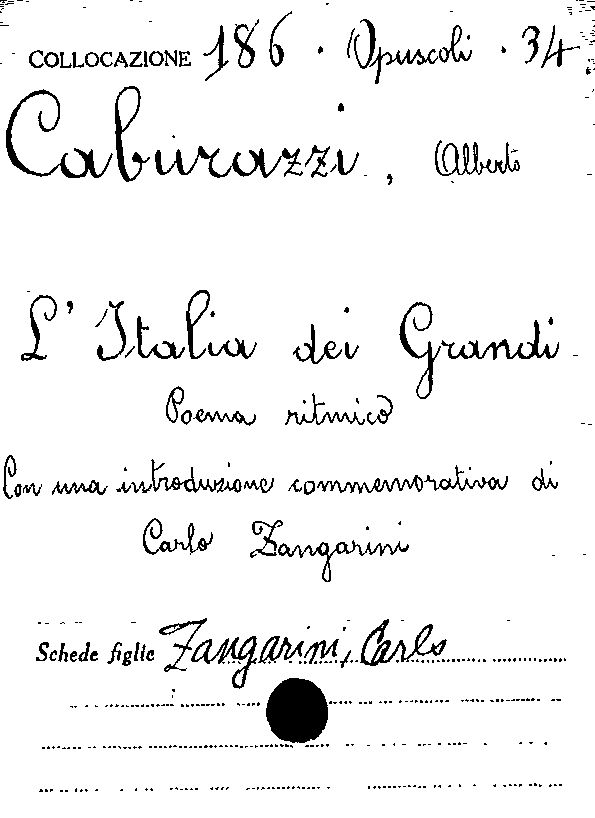 COLLOCAZIONE 186 . Opuscoli . 34
Caburazzi, Alberto
L'Italia dei Grandi
Poema ritmico
Con una introduzione commemorativa di
Carlo Zangarini
Schede figlie Zangarini, Carlo